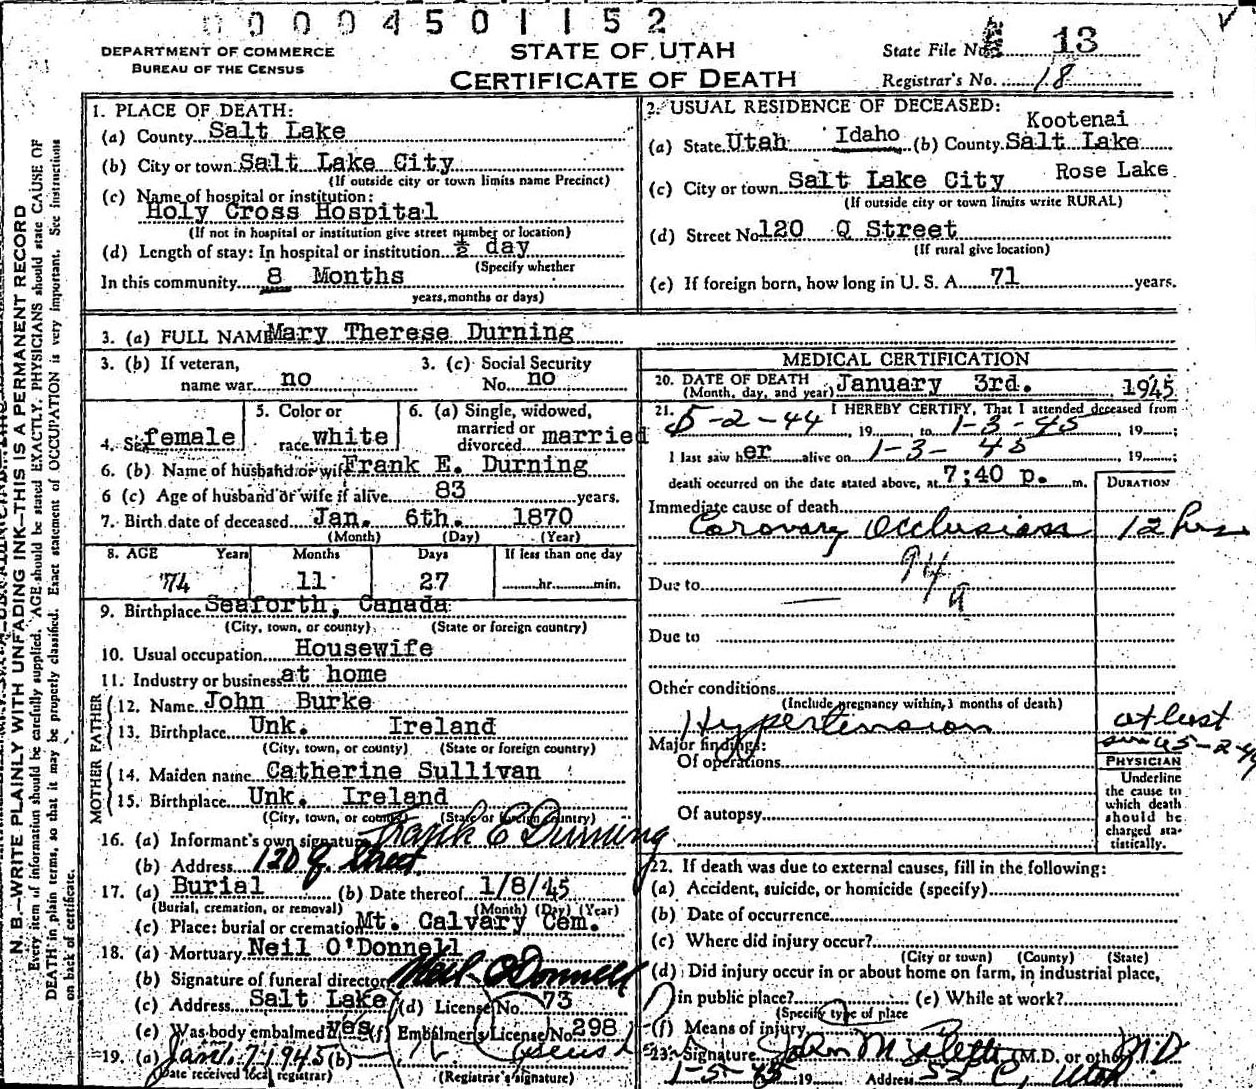 0 0 0 0 4 5 0 1 1 5 2
DEPARTMENT OF COMMERCE
BUREAU OF THE CENSUS
STATE OF UTAH
CERTIFICATE OF DEATH
State File No. 13
Registrar's No. 18
N. B.—WRITE PLAINLY WITH UNFADING INK—THIS IS A PERMANENT RECORD
Every item of information should be carefully supplied. AGE should be stated EXACTLY. PHYSICIANS should state CAUSE OF
DEATH in plain terms, so that it may be properly classified. Exact statement of OCCUPATION is very important. See instructions
on back of certificate.
1. PLACE OF DEATH:
(a) County Salt Lake
(b) City or town Salt Lake City
(If outside city or town limits name Precinct)
(c) Name of hospital or institution:
Holy Cross Hospital
(If not in hospital or institution give street number or location)
(d) Length of stay: In hospital or institution ½ day
(Specify whether
In this community 8 Months
years, months or days)
2. USUAL RESIDENCE OF DECEASED:
Kootenai
(a) State Utah Idaho (b) County Salt Lake
(c) City or town Salt Lake City Rose Lake
(If outside city or town limits write RURAL)
(d) Street No. 120 Q Street
(If rural give location)
(e) If foreign born, how long in U. S. A. 71 years.
3. (a) FULL NAME Mary Therese Durning
3. (b) If veteran, name war no
3. (c) Social Security No. no
4. Sex female
5. Color or race white
6. (a) Single, widowed, married or divorced married
6. (b) Name of husband or wife Frank E. Durning
6 (c) Age of husband or wife if alive 83 years.
7. Birth date of deceased Jan. 6th. 1870
(Month) (Day) (Year)
8. AGE Years Months Days If less than one day
74 11 27 hr. min.
9. Birthplace Seaforth, Canada
(City, town, or county) (State or foreign country)
10. Usual occupation Housewife
11. Industry or business at home
FATHER
12. Name John Burke
13. Birthplace Unk. Ireland
(City, town, or county) (State or foreign country)
MOTHER
14. Maiden name Catherine Sullivan
15. Birthplace Unk. Ireland
(City, town, or county) (State or foreign country)
16. (a) Informant's own signature Frank E Durning
(b) Address 120 Q Street
17. (a) Burial (b) Date thereof 1/8/45
(Burial, cremation, or removal) (Month) (Day) (Year)
(c) Place: burial or cremation Mt. Calvary Cem.
18. (a) Mortuary Neil O'Donnell
(b) Signature of funeral director Neil O'Donnell
(c) Address Salt Lake (d) License No. 73
(e) Was body embalmed yes (f) Embalmer's License No. 298
19. (a) Jan. 7 1945 (b)
(Date received local registrar) (Registrar's signature)
MEDICAL CERTIFICATION
20. DATE OF DEATH January 3rd. 1945
(Month, day, and year)
21. I HEREBY CERTIFY, That I attended deceased from
5-2-44, 19 to 1-3-45, 19 ;
I last saw her alive on 1-3-45, 19 ;
death occurred on the date stated above, at 7:40 p. m.
DURATION
Immediate cause of death
Coronary Occlusion 12 hrs
94
a
Due to
Due to
Other conditions
(Include pregnancy within 3 months of death)
Hypertension at least
since 5-2-44
Major findings:
Of operations
Of autopsy
PHYSICIAN
Underline
the cause to
which death
should be
charged sta-
tistically.
22. If death was due to external causes, fill in the following:
(a) Accident, suicide, or homicide (specify)
(b) Date of occurrence
(c) Where did injury occur?
(City or town) (County) (State)
(d) Did injury occur in or about home on farm, in industrial place,
in public place? (e) While at work?
(Specify type of place
(f) Means of injury
23. Signature John M. (M.D. or other) M.D
1-5-45 19 Address S L C, Utah